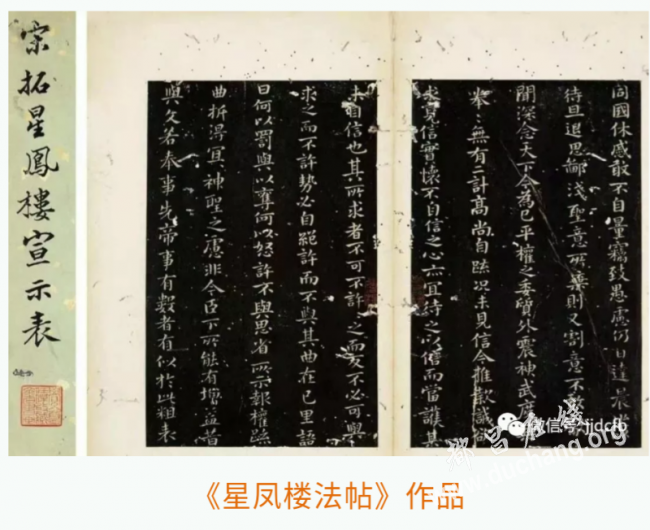 宋拓星鳳樓宣示表
同國休慼敢不自量竊致愚慮仍日達晨坐
待旦退思鄙淺聖意所棄則又割意不敢
聞深念天下今為已平權之委質外震神武度
拳〻無有二計高尚自疏況未見信今推款誠欲
求見信實懷不自信之心亦宜待之以信而當護其
未自信也其所求者不可不許〻之而反不必可與
求之而不許勢必自絕許而不與其曲在己里語
曰何以罰與以奪何以怒許不與思省所示報權疏
曲折得宜神聖之慮非今臣下所能有增益昔
與文若奉事先帝事有數者有似於此粗表
微信号: jjdcfb
都昌在线
www.duchang.org
《星凤楼法帖》作品